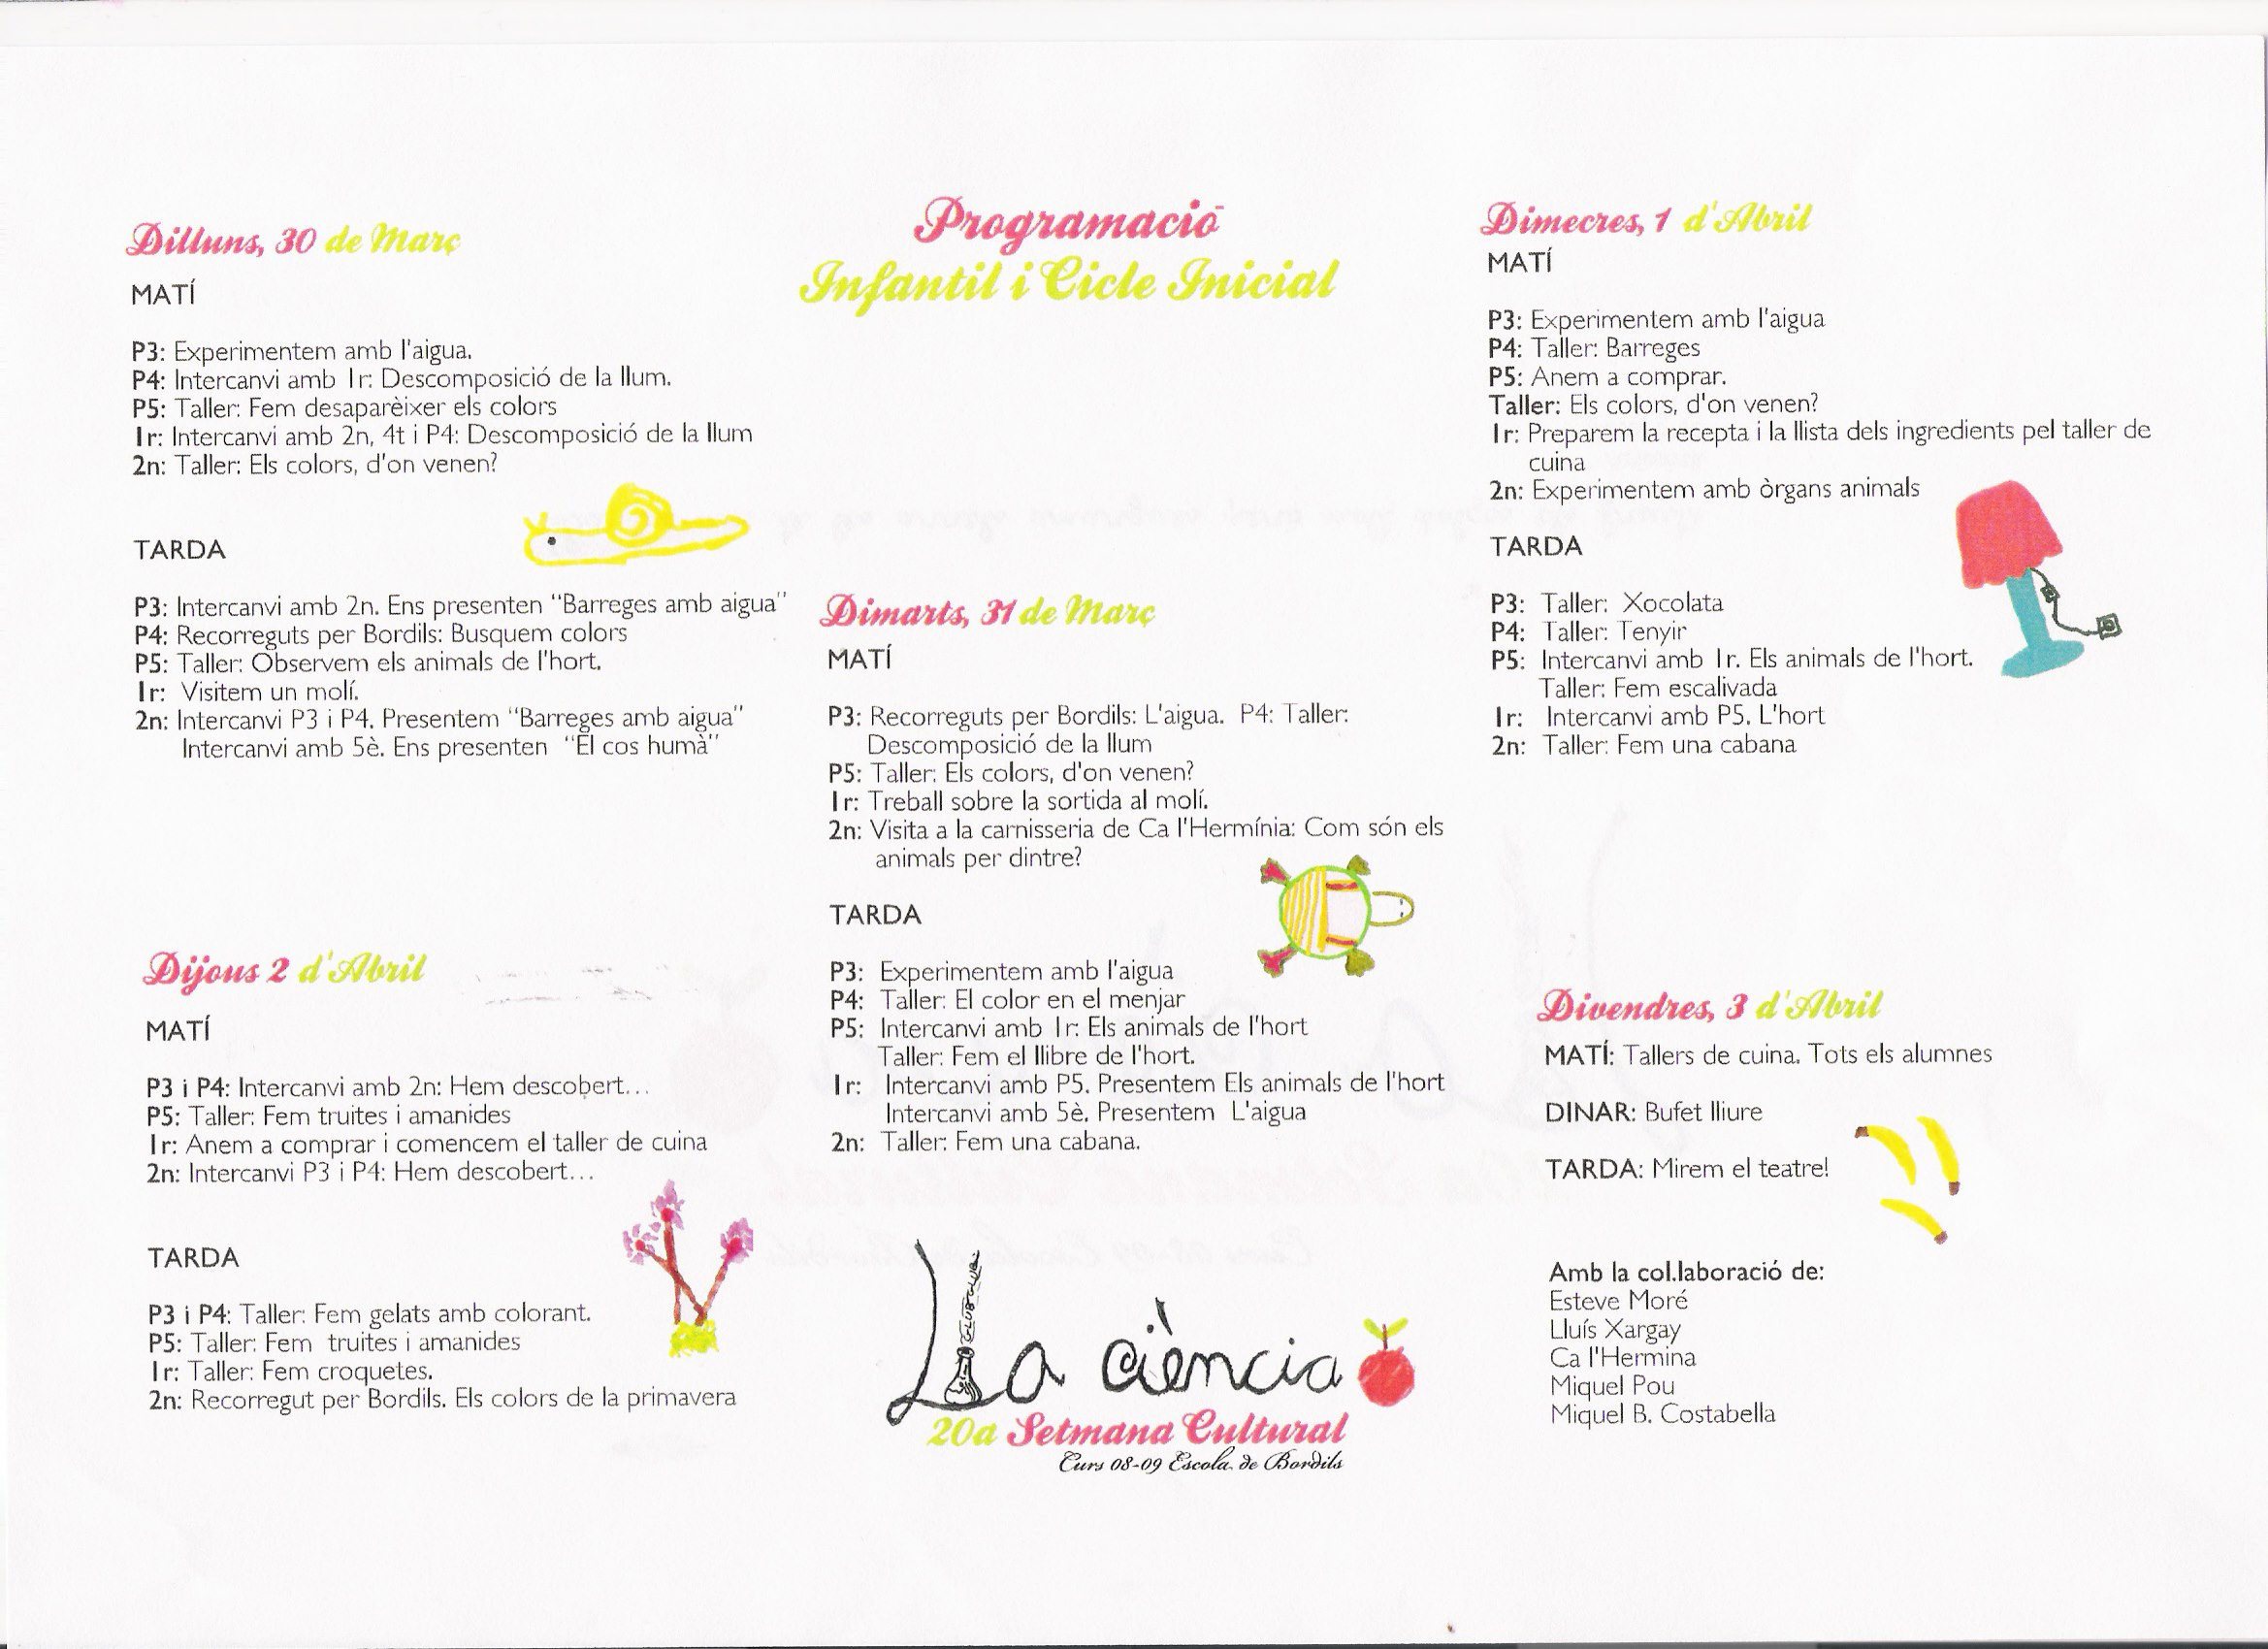 Programació
Infantil i Cicle Inicial
Dilluns, 30 de Març
MATÍ
P3: Experimentem amb l'aigua.
P4: Intercanvi amb 1r: Descomposició de la llum.
P5: Taller: Fem desaparèixer els colors
1r: Intercanvi amb 2n, 4t i P4: Descomposició de la llum
2n: Taller: Els colors, d'on venen?
TARDA
P3: Intercanvi amb 2n. Ens presenten "Barreges amb aigua"
P4: Recorreguts per Bordils: Busquem colors
P5: Taller: Observem els animals de l'hort.
1r: Visitem un molí.
2n: Intercanvi P3 i P4. Presentem "Barreges amb aigua"
Intercanvi amb 5è. Ens presenten "El cos humà"
Dimarts, 31 de Març
MATÍ
P3: Recorreguts per Bordils: L'aigua. P4: Taller:
Descomposició de la llum
P5: Taller: Els colors, d'on venen?
1r: Treball sobre la sortida al molí.
2n: Visita a la carnisseria de Ca l'Hermínia: Com són els
animals per dintre?
TARDA
P3: Experimentem amb l'aigua
P4: Taller: El color en el menjar
P5: Intercanvi amb 1r: Els animals de l'hort
Taller: Fem el llibre de l'hort.
1r: Intercanvi amb P5. Presentem Els animals de l'hort
Intercanvi amb 5è. Presentem L'aigua
2n: Taller: Fem una cabana.
Dimecres, 1 d'Abril
MATÍ
P3: Experimentem amb l'aigua
P4: Taller: Barreges
P5: Anem a comprar.
Taller: Els colors, d'on venen?
1r: Preparem la recepta i la llista dels ingredients pel taller de
cuina
2n: Experimentem amb òrgans animals
TARDA
P3: Taller: Xocolata
P4: Taller: Tenyir
P5: Intercanvi amb 1r. Els animals de l'hort.
Taller: Fem escalivada
1r: Intercanvi amb P5. L'hort
2n: Taller: Fem una cabana
Dijous 2 d'Abril
MATÍ
P3 i P4: Intercanvi amb 2n: Hem descobert...
P5: Taller: Fem truites i amanides
1r: Anem a comprar i comencem el taller de cuina
2n: Intercanvi P3 i P4: Hem descobert...
TARDA
P3 i P4: Taller: Fem gelats amb colorant.
P5: Taller: Fem truites i amanides
1r: Taller: Fem croquetes.
2n: Recorregut per Bordils. Els colors de la primavera
Divendres, 3 d'Abril
MATÍ: Tallers de cuina. Tots els alumnes
DINAR: Bufet lliure
TARDA: Mirem el teatre!
Amb la col.laboració de:
Esteve Moré
Lluís Xargay
Ca l'Hermina
Miquel Pou
Miquel B. Costabella
La ciència
20a Setmana Cultural
Curs 08-09 Escola de Bordils